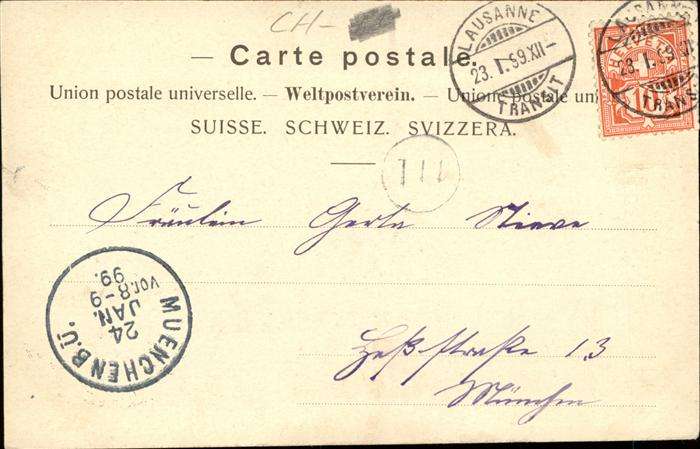 CH-
— Carte postale. —
Union postale universelle. — Weltpostverein. — Unione postale uni
SUISSE. SCHWEIZ. SVIZZERA.
LAUSANNE
23. I. 99. XII-
TRANSIT
LAUSANNE
23. I. 99. XII
TRANS
HELVETIA
10
111
Fräulein Gerta Stieve
Heß-straße 13
München
MUENCHEN B.Ü.
24
JAN.
vor. 8-9
99.